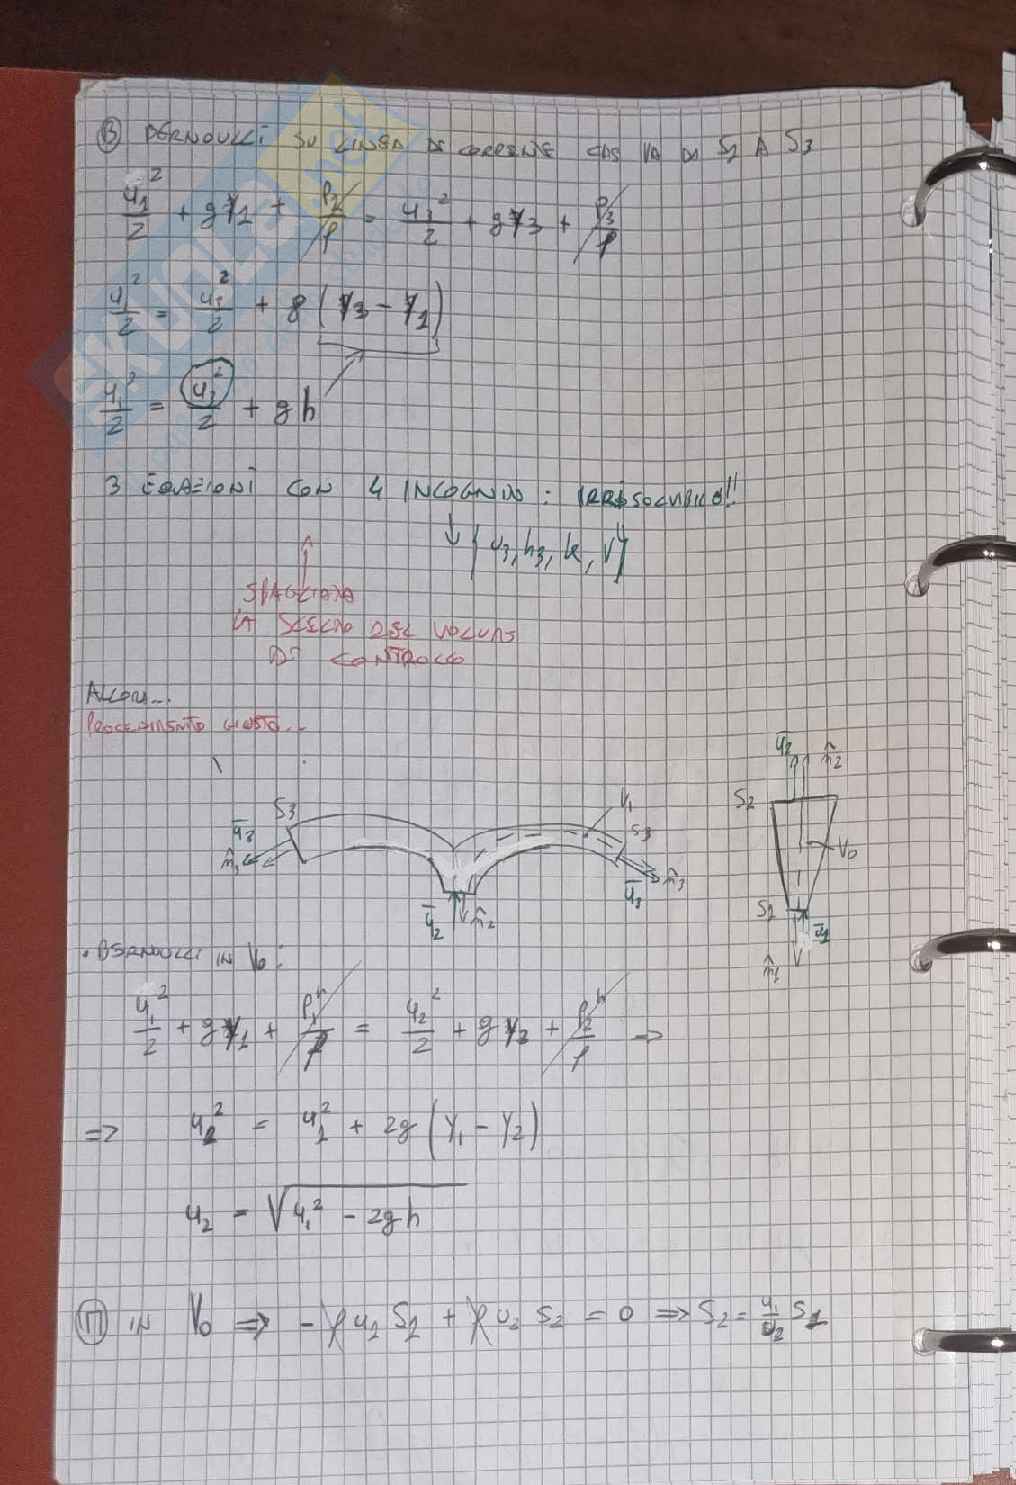 Ⓑ BERNOULLI SU LINEA DI CORRENTE CHE VA DA S1 A S3
u1²/2 + gY1 + P1/ρ = u3²/2 + gY3 + P3/ρ
u1²/2 = u3²/2 + g(Y3 - Y1)
u1²/2 = u3²/2 + gh
3 EQUAZIONI CON 4 INCOGNITE: IRRISOLVIBILE!!
↓ {u3, h3, k, V}
SBAGLIATA
LA SCELTA DEL VOLUME
DI CONTROLLO
ALLORA...
PROCEDIMENTO GIUSTO...
u̅2 n̂2
S2
V1
S3 S3
u̅3
n̂3
V0
n̂3
u̅3
S1
u̅2 n̂2
u̅1
n̂1
• BERNOULLI IN V0:
u1²/2 + gY1 + P1/ρ = u2²/2 + gY2 + P2/ρ ⇒
⇒ u2² = u1² + 2g(Y1 - Y2)
u2 = √u1² - 2gh
Ⓜ IN V0 ⇒ -ρu1 S1 + ρu2 S2 = 0 ⇒ S2 = u1/u2 S1
SKUOLA.net